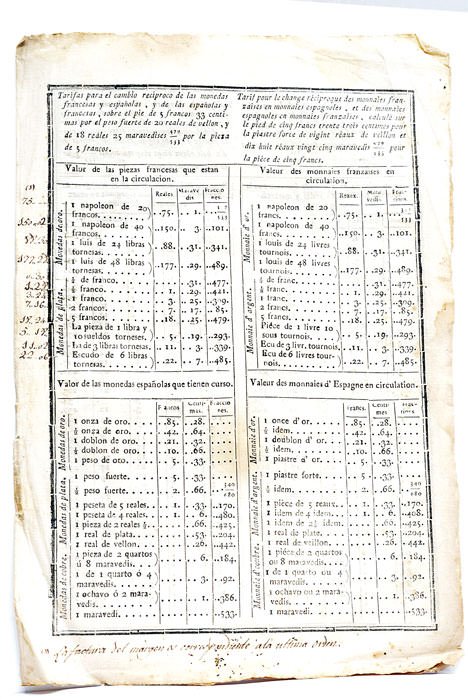 Tarifas para el cambio reciproco de las monedas
francesas y españolas, y de las españolas y
francesas, sobre el pie de 5 francos 33 centi-
mas por el peso fuerte de 20 reales de vellon, y
de 18 reales 25 maravedises 479/533 por la pieza
de 5 francos.
Tarif pour le change réciproque des monnaies fran-
zaises en monnaies espagnoles, et des monnaies
espagnoles en monnaies franzaises, calculé sur
le pied de cinq francs trente trois centimes pour
la piastre forte de vigint réaux de veillon et
dix huit réaux vingt cinq maravedis pour
la pièce de cinq francs.
Valor de las piezas francesas que estan
en la circulacion.
Reales Marave dis Fraccio nes.
Monedas de oro.
1 napoleon de 20
francos. .75. 1.
1 napoleon de 40
francos. .150. 3. .101.
1 luis de 24 libras
tornesas. .88. .31. .341.
1 luis de 48 libras
tornesas. .177. .29. .489.
Monedas de plata.
¼ de franco. .31. .477.
½ franco. 1. .29. .421.
1 franco. 3. .25. .309.
2 francos 7. .17. .85.
5 francos. .18. .25. .479.
La pieza de 1 libra y
10 sueldos torneses. 5. .19. .293.
La de 3 libras tornes. .11. 3. .339.
Escudo de 6 libras
tornesas. .22. 7. .485.
Valeur des monnaies franzaises en
circulation.
Reaux. Mara vedis Frac cions.
Monnaie d'or.
1 napoleon de 20
francs. .75. 1.
1 napoleon de 40
francs. .150. 3. .101.
1 louis de 24 livres
tournois. .88. .31. .341.
1 louis de 48 livres
tournois. .177. .29. .489.
Monnaie d'argent.
¼ de franc. .31. .477.
½ franc. 1. .29. .421.
1 franc. 3. .25. .309.
2 francs. 7. .17. .85.
5 francs. .18. .25. .479.
Pièce de 1 livre 10
sous tournois. 5. .19. .293.
Ecu de 3 livr. tournois. .11. 3. .339.
Ecu de 6 livres tour-
nois. .22. 7. .485.
Valor de las monedas españolas que tienen curso.
Francos Centi mas. Fraccio nes.
Monedas de oro.
1 onza de oro. .85. .28.
½ onza de oro. .42. .64.
1 doblon de oro. .21. .32.
½ doblon de oro. .10. .66.
1 peso de oro. 5. .33.
Monedas de plata.
1 peso fuerte. 5. .33.
½ peso fuerte. 2. .66. 340/680
1 peseta de 5 reales. 1. .33. .170.
1 peseta de 4 reales. 1. 6. .480.
1 pieza de 2 reales ½ .66. .425.
1 real de plata. .53. .204.
1 real de vellon. .26. .442.
Monedas de cobre.
1 pieza de 2 quartos
ú 8 maravedis. 6. .184.
1 de 1 quarto ó 4
maravedis. 3. .92.
1 ochavo ó 2 mara-
vedis. 1. .386.
1 maravedi. .533.
Valeur des monnaies d'Espagne en circulation.
Francs. Centi mes. Frac cions.
Monnaie d'or.
1 once d'or. .85. .28.
½ idem. .42. .64.
1 doublon d'or. .21. .32.
½ idem. .10. .66.
1 piastre d'or. 5. .33.
Monnaie d'argent.
1 piastre forte. 5. .33.
½ idem. 2. .66. 340/680
1 piéce de 5 reaux. 1. .33. .170.
1 idem de 4 idem. 1. 6. .408.
1 idem de 2½ idem. .66. .425.
1 real de plate. .53. .204.
1 real de veillon. .26. .442.
Monnaie d'cuivre.
1 piéce de 2 quartos
ou 8 maravedis. 6. .184.
1 de 1 quarto ou 4
maravedis. 3. .92.
1 ochavo ou 2 mara-
vedis. 1. .386.
1 maravedi. .533.
factura del margen es correspondiente á la ultima orden.